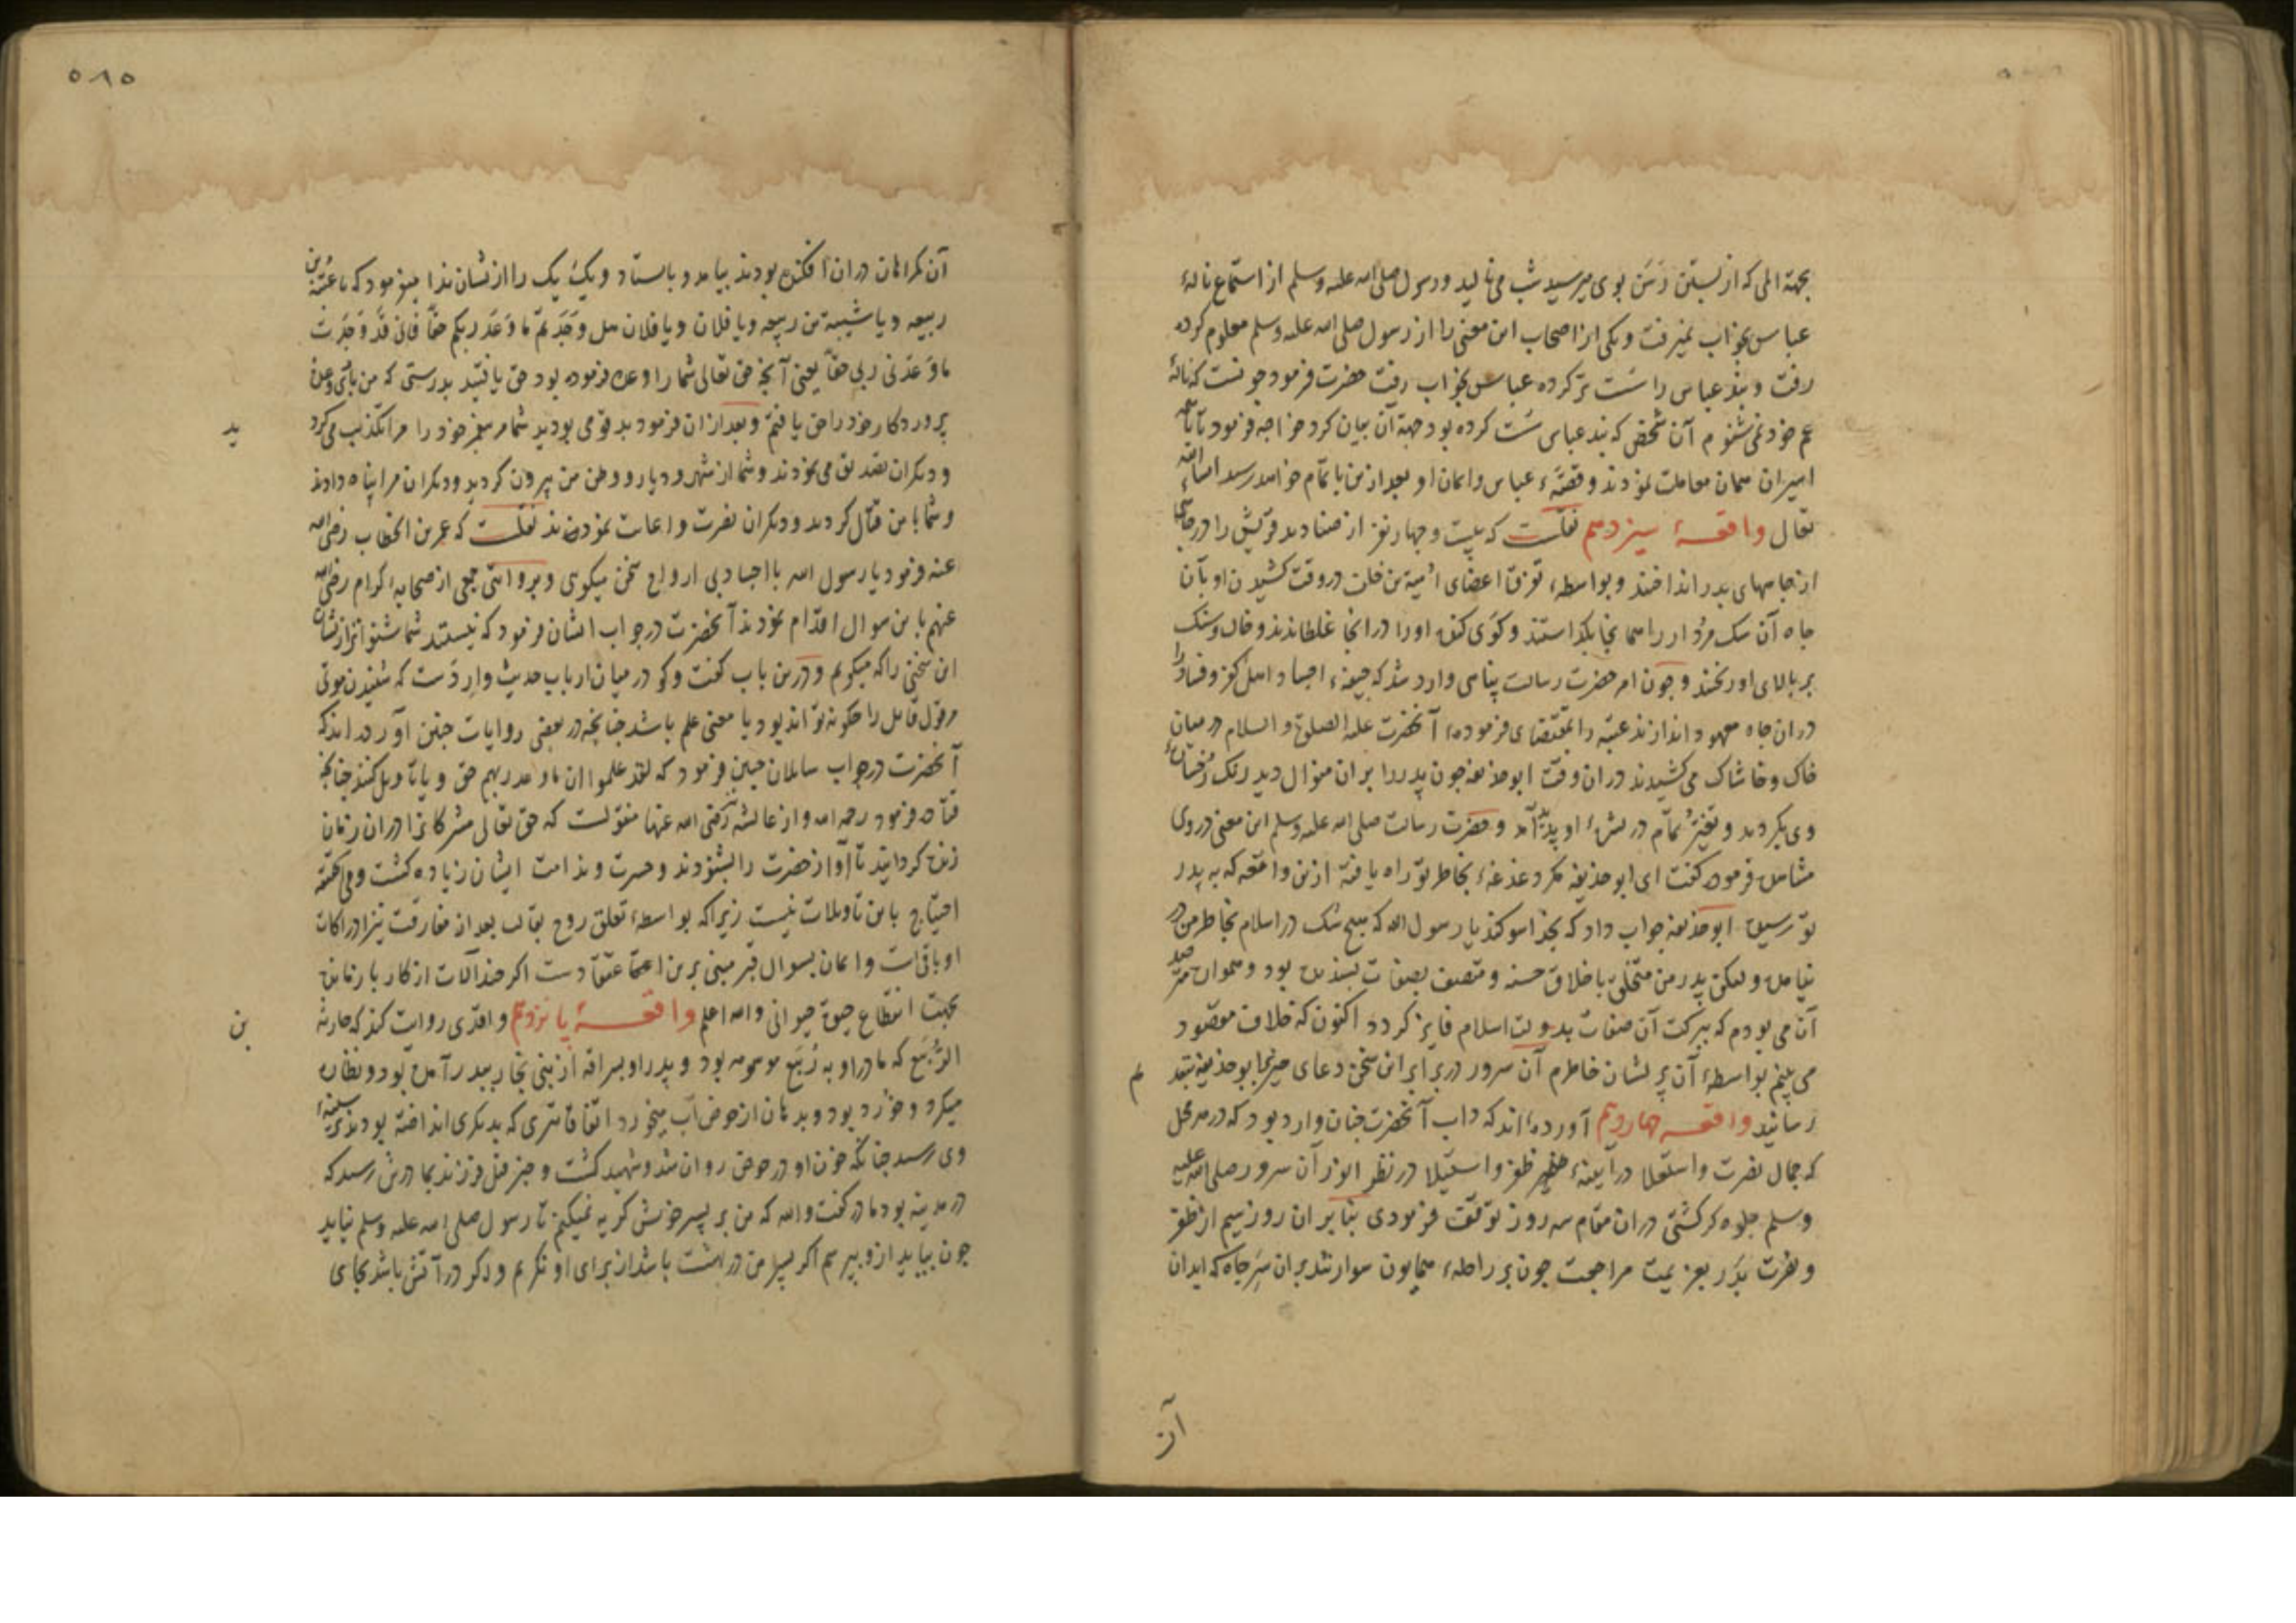 بجهة المی که از بستن رسن بوی میرسید شب می نالید و رسول صلی الله علیه وسلم از استماع نالهٔ
عباس بخواب نمیرفت و یکی از اصحاب این معنی را از رسول صلی الله علیه وسلم معلوم کرده
رفت و بند عباس را سست تر کرده عباس بخواب رفت حضرت فرمود چونست که نالهٔ
عم خود نمی شنوم آن شخص که بند عباس سست کرده بود جهة آن بیان کرد خواجه فرمود تا با همه
اسیران همان معاملت نمودند و قصهٔ عباس و ایمان او بعد ازین باتمام خواهد رسید انشاء الله
تعالی واقعهٔ سیزدهم نقلست که بیست و چهار نفر از صنادید قریش را در چاهی
از چاههای بدر انداختند و بواسطهٔ تفرق اعضای امیة بن خلف در وقت کشیدن او بآن
چاه آن سک مردار را همانجا بکذاستند و کوی کنده او را در انجا غلطانیدند و خاک و سنک
بر بالای او ریختند و چون امر حضرت رسالت پناهی وارد شد که جیفهٔ اجساد اهل کفر و فساد را
دران چاه معهود اندازند عتبه را بمقتضای فرمودهٔ آنحضرت علیه الصلوة و السلام در میان
خاک و خاشاک می کشیدند دران وقت ابو حذیفه چون پدر را بران منوال دید رنک رخسارهٔ
وی بکردید و تغیر تمام در بشرهٔ او پدید آمد و حضرت رسالت صلی الله علیه وسلم این معنی در وی
مشاهده فرموده کفت ای ابو حذیفه مکر دغدغهٔ بخاطر تو راه یافته ازین واقعه که به پدر
تو رسیده ابو حذیفه جواب داد که بخدا سوکند یا رسول الله که هیچ شک در اسلام بخاطر من در
نیامده ولیکن پدر من متخلی باخلاق حسنه و متصف بصفات پسندیده بود و همواره مترصد
آن می بودم که ببرکت آن صفات بدولت اسلام فایز کردد اکنون که خلاف مقصود
می بینم بواسطهٔ آن پریشان خاطرم آن سرور در برابر این سخن دعای خیر بابو حذیفه بتقدیم
رسانید واقعه چهاردهم آورده اند که داب آنحضرت چنان وارد بود که در هر محل
که جمال نصرت و استعلا در آیینهٔ ظفر و استیلا در نظر انور آن سرور صلی الله علیه
وسلم جلوه کر کشتی دران مقام سه روز توقف فرمودی بنابران روز سیم از ظفر
و نصرت بدر بعزیمت مراجعت چون بر راحلهٔ همایون سوار شد بران سر چاه که ابدان
آن
٥٨٥
آن کمراهان دران افکنده بودند بیامد و باستاد و یک یک را از نشان ندا میفرمود که یا عتبة بن
ربیعه و یا شیبة بن ربیعه و یا فلان و یا فلان هل وجدتم ما وعد ربکم حقا فانی قد وجدت
ما وعدنی ربی حقا یعنی آنچه حق تعالی شما را وعده فرموده بود حق یافتید بدرستی که من باری وعدهٔ
پروردکار خود را حق یافتم و بعد ازان فرمود بد قومی بودید شما مر پیغمبر خود را مرا تکذیب می کرد
ید
و دیکران تصدیق می نمودند و شما از شهر و دیار و وطن من بیرون کردید و دیکران مرا پناه دادند
و شما با من قتال کردید و دیکران نصرت و اعانت نمودند نقلست که عمر بن الخطاب رضی الله
عنه فرمود یا رسول الله با اجساد بی ارواح سخن میکوی و بروایتی جمعی از صحابهٔ کرام رضی الله
عنهم باین سوال اقدام نمودند آنحضرت در جواب ایشان فرمود که نیستند شما شنواتر از ایشان
این سخنی را که میکویم و درین باب کفت و کو در میان ارباب حدیث واردست که شنیدن موتی
مر قول قایل را چکونه تواند بود یا معنی علم باشد چنانچه در بعضی روایات چنین آورده اند که
آنحضرت در جواب سایلان چنین فرمود که لقد علموا ان ما وعد ربهم حق و یا تاویل کنند چنانچه
قتاده فرمود رحمه الله و از عایشه رضی الله عنها منقولست که حق تعالی مشرکانرا دران زمان
زنده کردانید تا آواز حضرت را بشنودند و حسرت و ندامت ایشان زیاده کشت و فی الحقیقه
احتیاج باین تاویلات نیست زیرا که بواسطهٔ تعلق روح بقالب بعد از مفارقت نیز ادراکات
او باقیست و ایمان بسوال قبر مبنی برین اعتقادست اکرچه آلات از کار بازمانده
بجهت انقطاع حیوة حیوانی والله اعلم واقعهٔ پانزدهم واقدی روایت کند که حارثه
بن
الربیع که مادر او به ربیع موسومه بود و پدر او سراقه از بنی نجار ببدر آمده بود و نظاره
میکرد و خورد بود و بدهان از حوض آب میخورد اتفاقا تیری که بدیکری انداخته بودند بر سینهٔ
وی رسید چنانکه خون او در حوض روان شد و شهید کشت و خبر قتل فرزند بمادرش رسید که
در مدینه بود مادر کفت والله که من بر پسر خویش کریه نمیکنم تا رسول صلی الله علیه وسلم نیاید
چون بیاید ازو بپرسم اکر پسر من در بهشت باشد از برای او نکریم و اکر در آتش باشد بجای